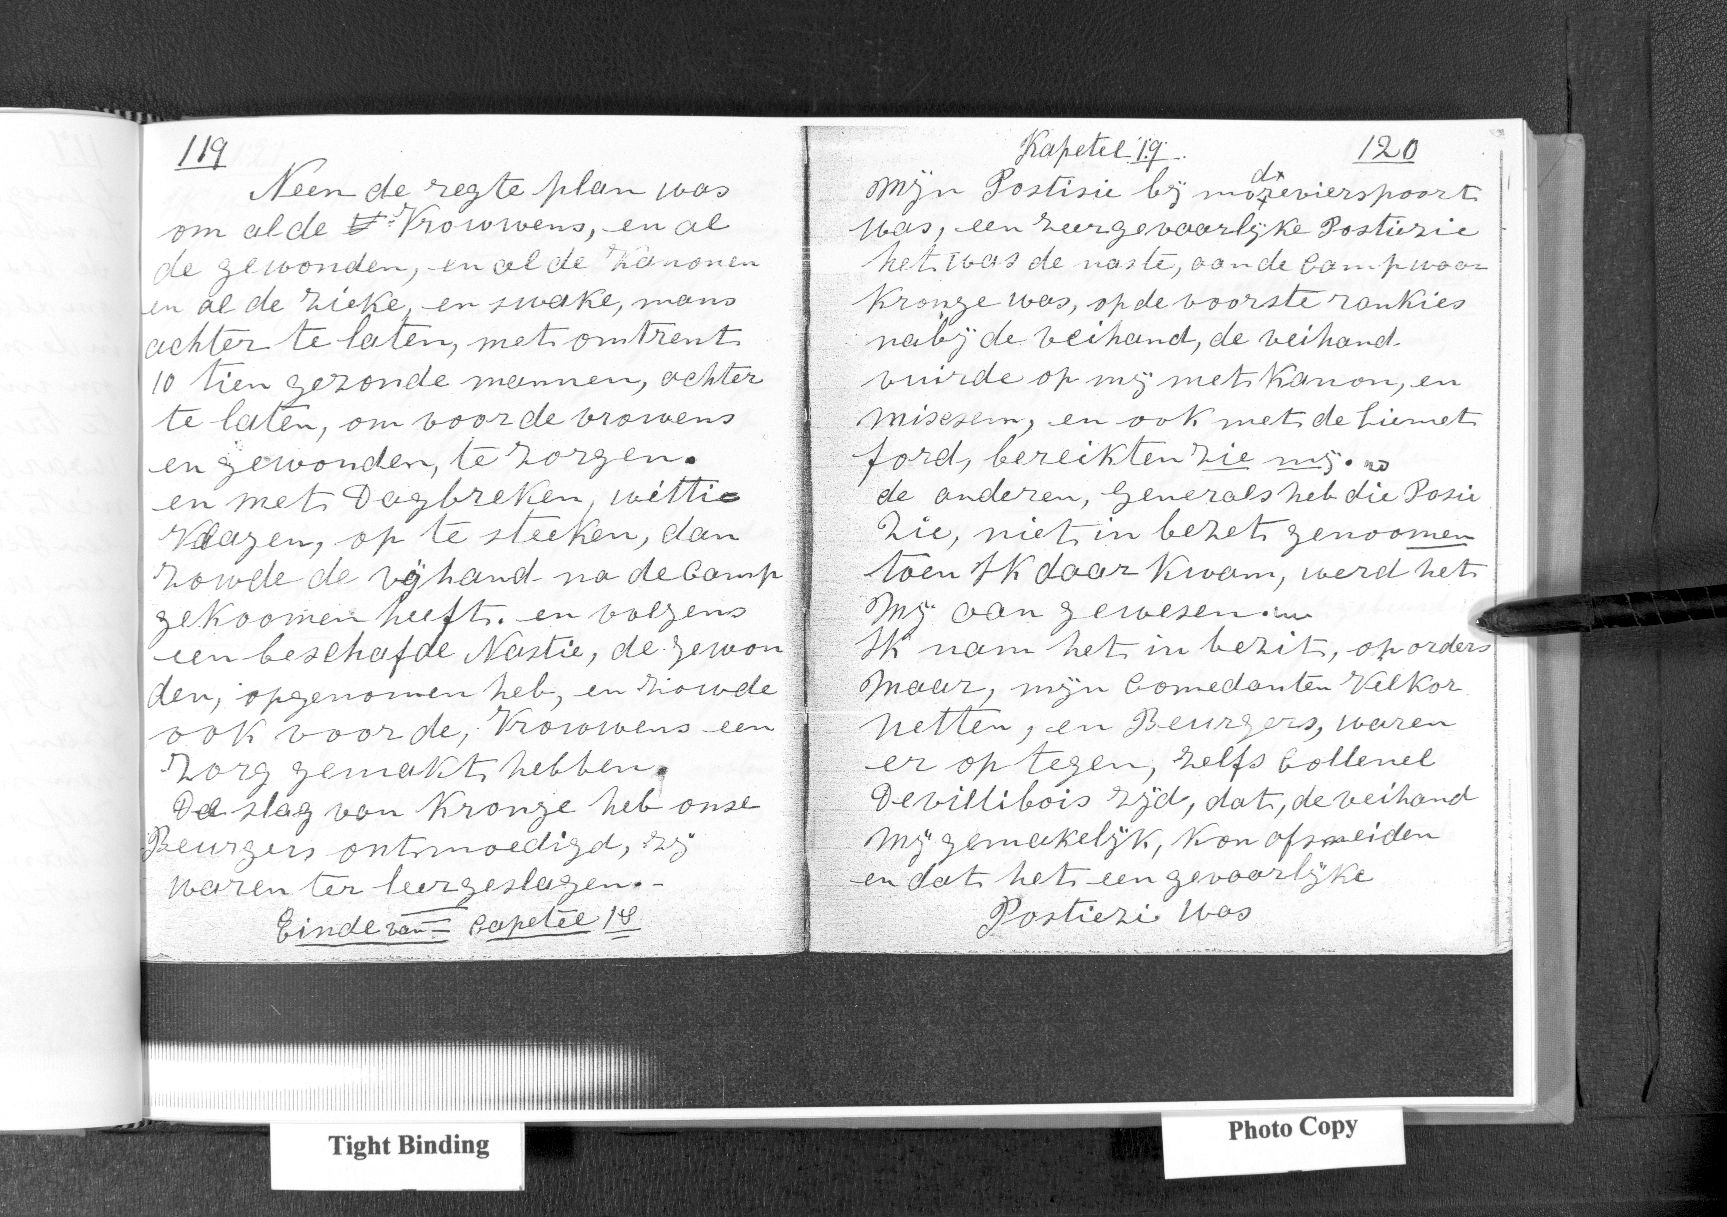 119
Neen de regte plan was
om al de Vrowwens, en al
de gewonden, en al de Kanonen
en al de zieke, en swake, mans
achter te laten, met omtrent
10 tien gezonde mannen, achter
te laten, om voor de vrowens
en gewonden, te zorgen.
en met Dagbreken, witti
Vlagen, op te steeken, dan
zowde de vyhand na de Camp
gekoomen heeft. en volgens
een beschafde Nastie, de gewon
den, opgenomen heb, en ziowde
ook voor de, Vrowwens een
zorg gemakt hebben.
De slag van Kronge heb onse
Beurgers ontmoedigd, zij
waren ter leergeslagen.-
Einde van Capetel 18
Kapetel 19 120
Mijn Postisie bij modrevierspoort
was, een zeer gevaarlijke Postiezie
het was de naste, aan de Camp waar
Kronge was, op de voorste rankies
nabij de veihand, de veihand
vuirde op mij met Kanon, en
Missem, en ook met de Liemet
ford, bereikten zie mij. no
de anderen, Generaals heb die Posie
zie, niet in bezet genoomen
toen Ik daar kwam, werd het
Mij aan gewesen.
Ik nam het in bezit, op orders
Maar, mijn Comedanten Velkor
netten, en Beurgers, waren
er op tegen, zelfs Collenel
Devillibois zijd, dat, de veihand
Mij gemakelijk, kon afsneiden
en dat het een gevaarlijke
Postiezi was
Tight Binding
Photo Copy